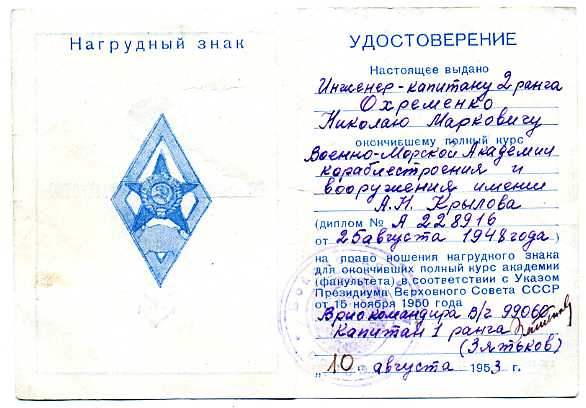 Нагрудный знак
УДОСТОВЕРЕНИЕ
Настоящее выдано
Инженер-капитану 2 ранга
Охременко
Николаю Марковичу
окончившему полный курс
Военно-Морской Академии
кораблестроения и
вооружения имени
А.Н. Крылова
(диплом № А 228916
от 25 августа 1948 года)
на право ношения нагрудного знака
для окончивших полный курс академии
(факультета) в соответствии с Указом
Президиума Верховного Совета СССР
от 15 ноября 1950 года
Врио командира В/ч 99060
Капитан 1 ранга
(Зятьков)
„10" августа 1953 г.